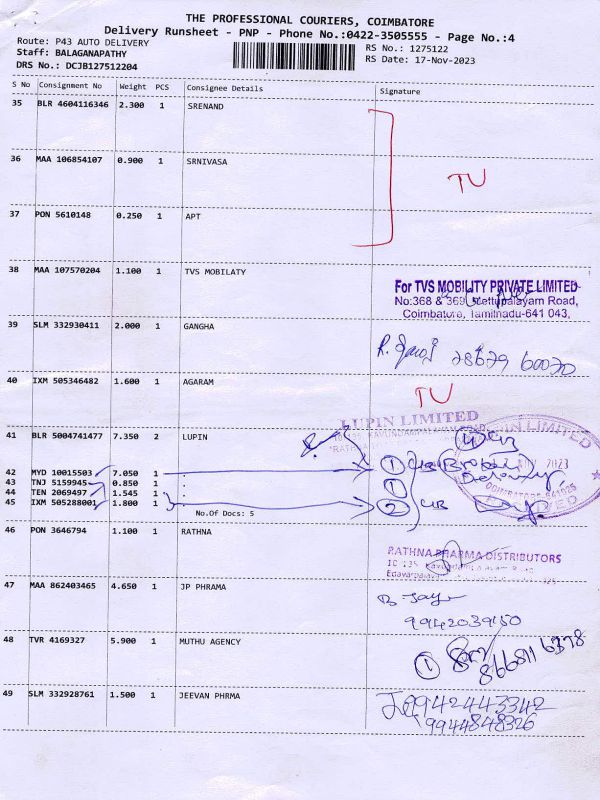 THE PROFESSIONAL COURIERS, COIMBATORE
Delivery Runsheet - PNP - Phone No.:0422-3505555 - Page No.:4
Route: P43 AUTO DELIVERY
Staff: BALAGANAPATHY
DRS No.: DCJB127512204
RS No.: 1275122
RS Date: 17-Nov-2023
S No Consignment No Weight PCS Consignee Details Signature
35 BLR 4604116346 2.300 1 SRENAND
36 MAA 106854107 0.900 1 SRNIVASA
TU
37 PON 5610148 0.250 1 APT
38 MAA 107570204 1.100 1 TVS MOBILATY
For TVS MOBILITY PRIVATE LIMITED
No:368 & 369 Mettupalayam Road,
Coimbatore, Tamilnadu-641 043.
39 SLM 332930411 2.000 1 GANGHA
40 IXM 505346482 1.600 1 AGARAM
TU
LUPIN LIMITED
41 BLR 5004741477 7.350 2 LUPIN
42 MYD 10015503 7.050 1 :
1
43 TNJ 5159945 0.850 1 :
1
44 TEN 2069497 1.545 1 :
45 IXM 505288001 1.800 1 :
2
No.Of Docs: 5
46 PON 3646794 1.100 1 RATHNA
RATHNA PHARMA DISTRIBUTORS
47 MAA 862403465 4.650 1 JP PHRAMA
9942039150
48 TVR 4169327 5.900 1 MUTHU AGENCY
1
49 SLM 332928761 1.500 1 JEEVAN PHRMA
9942443342
9944848326